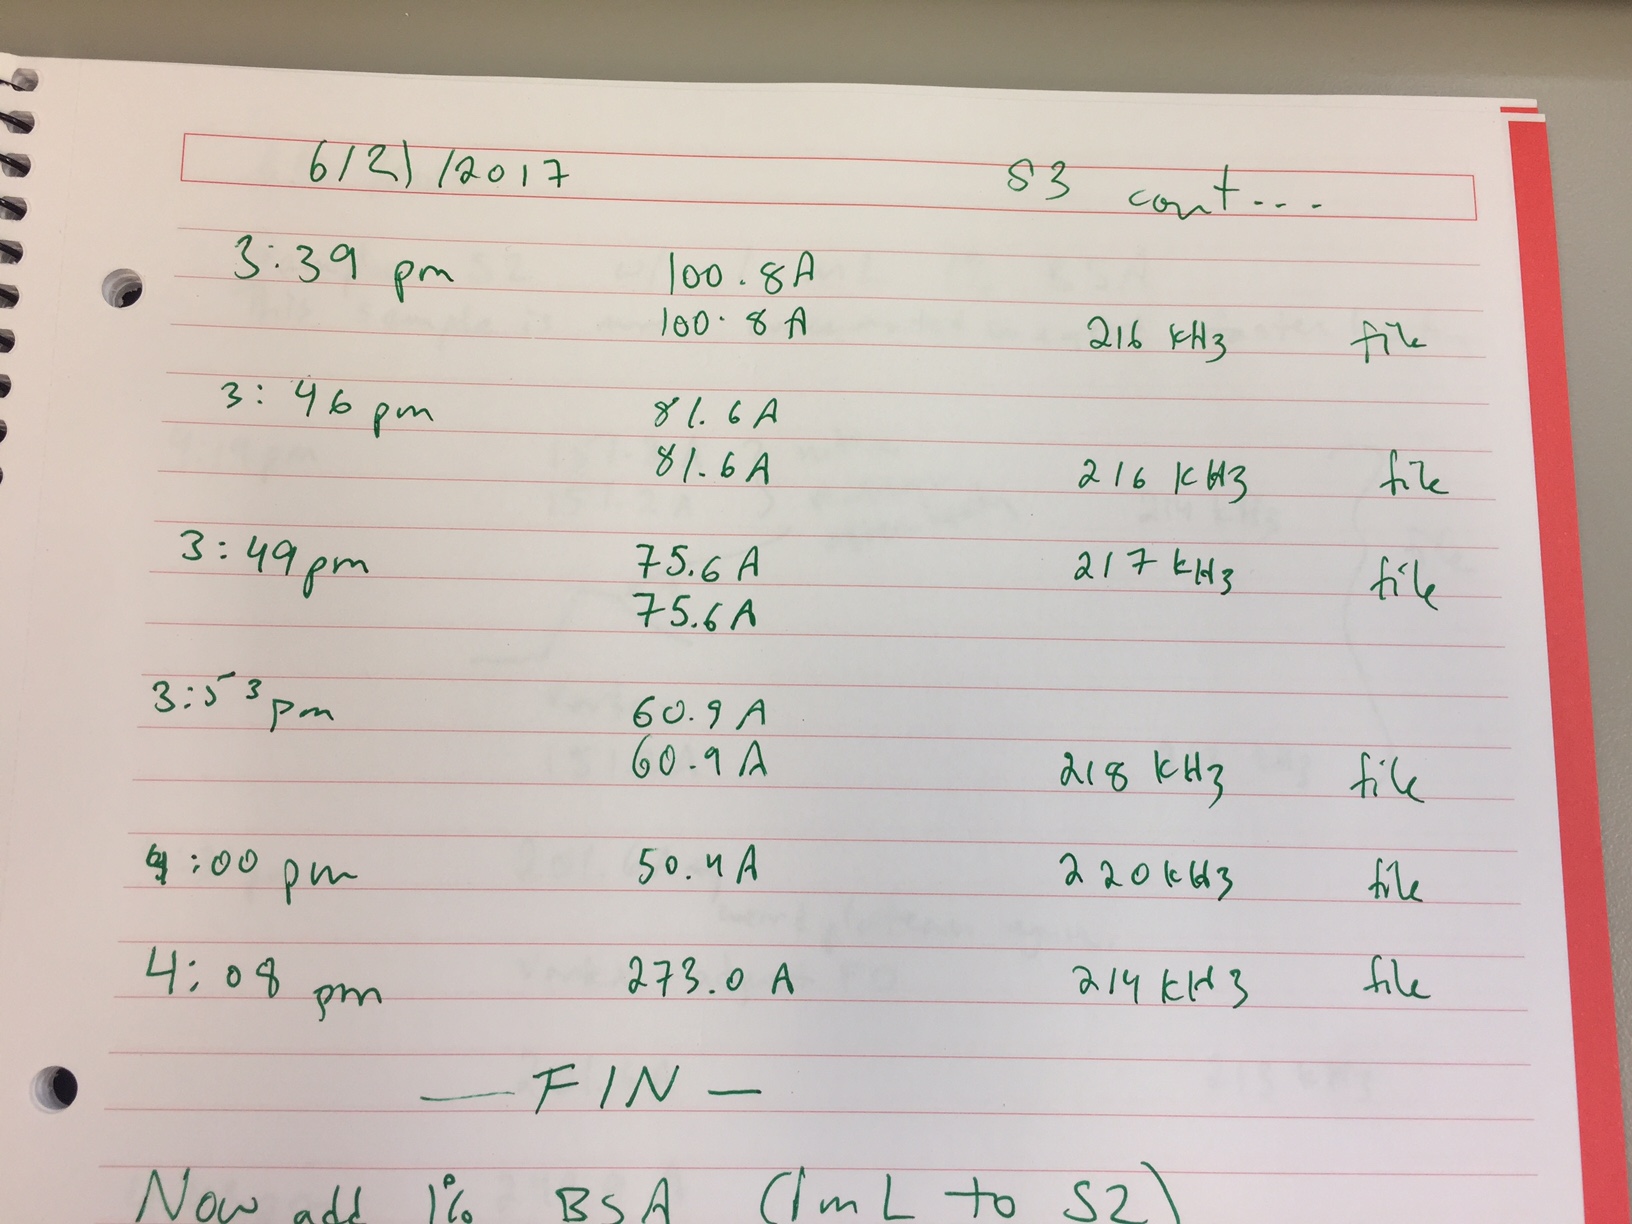 6/21/2017 S3 cont...
3:39 pm 100.8A
100.8A 216 kHz file
3:46 pm 81.6A
81.6A 216 kHz file
3:49 pm 75.6A 217 kHz file
75.6A
3:53 pm 60.9A
60.9A 218 kHz file
4:00 pm 50.4A 220 kHz file
4:08 pm 273.0A 214 kHz file
— FIN —
Now add 1% BSA (1mL to S2)